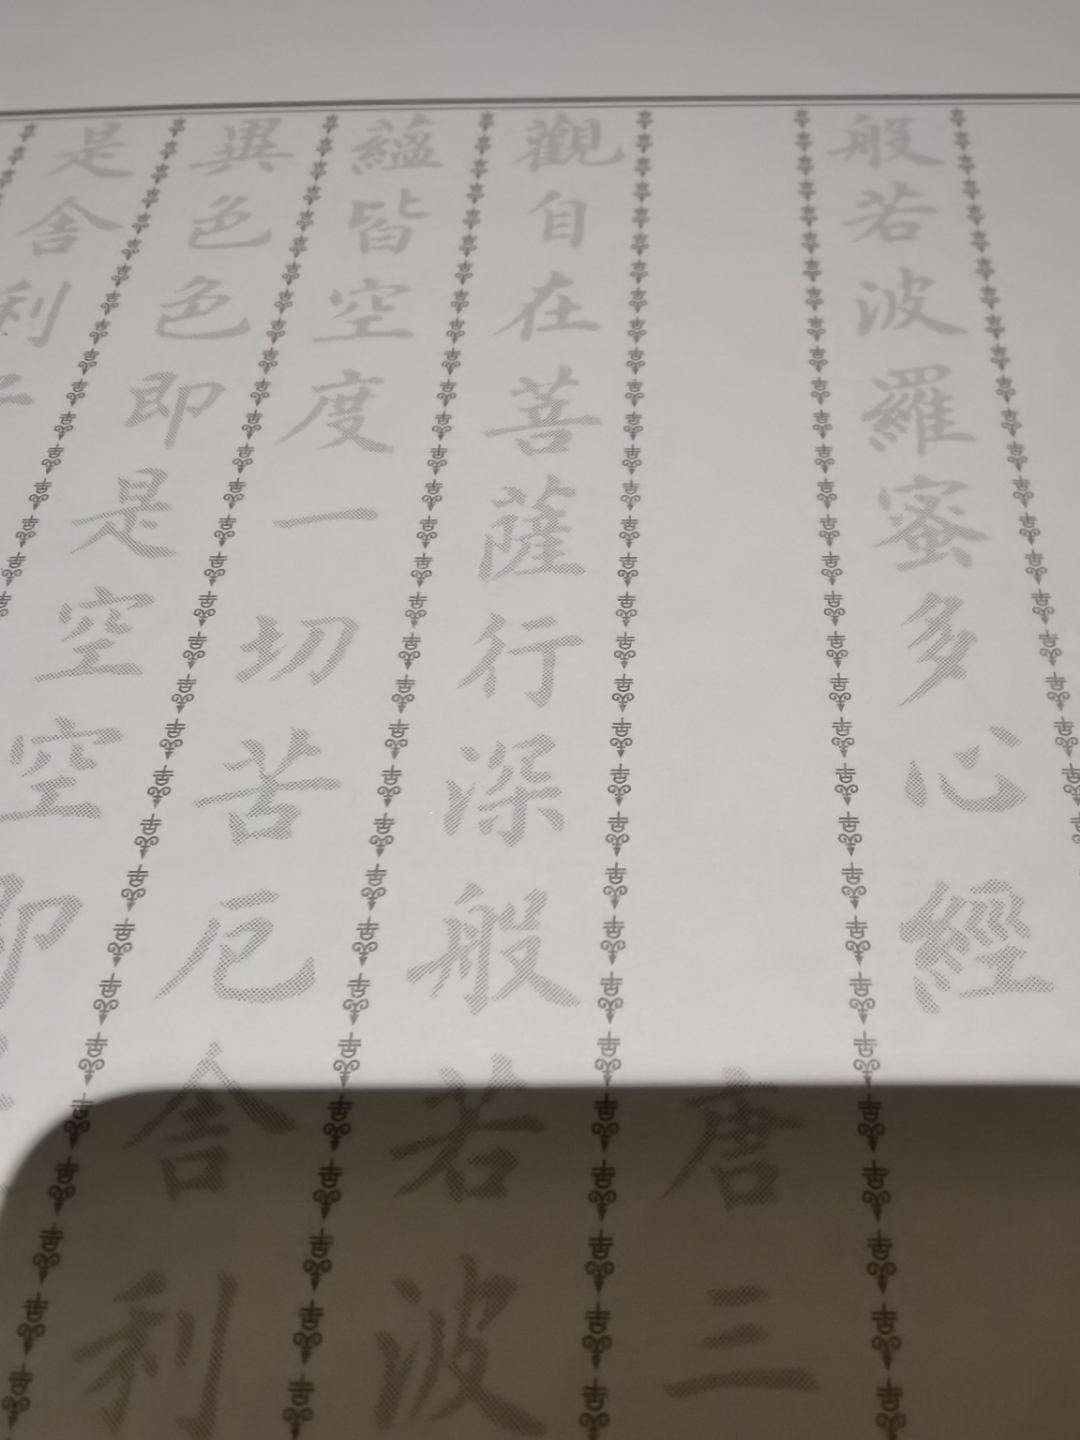 般若波羅蜜多心經
唐三
觀自在菩薩行深般若波
蘊皆空度一切苦厄舍利
異色色即是空空即
是舍利子